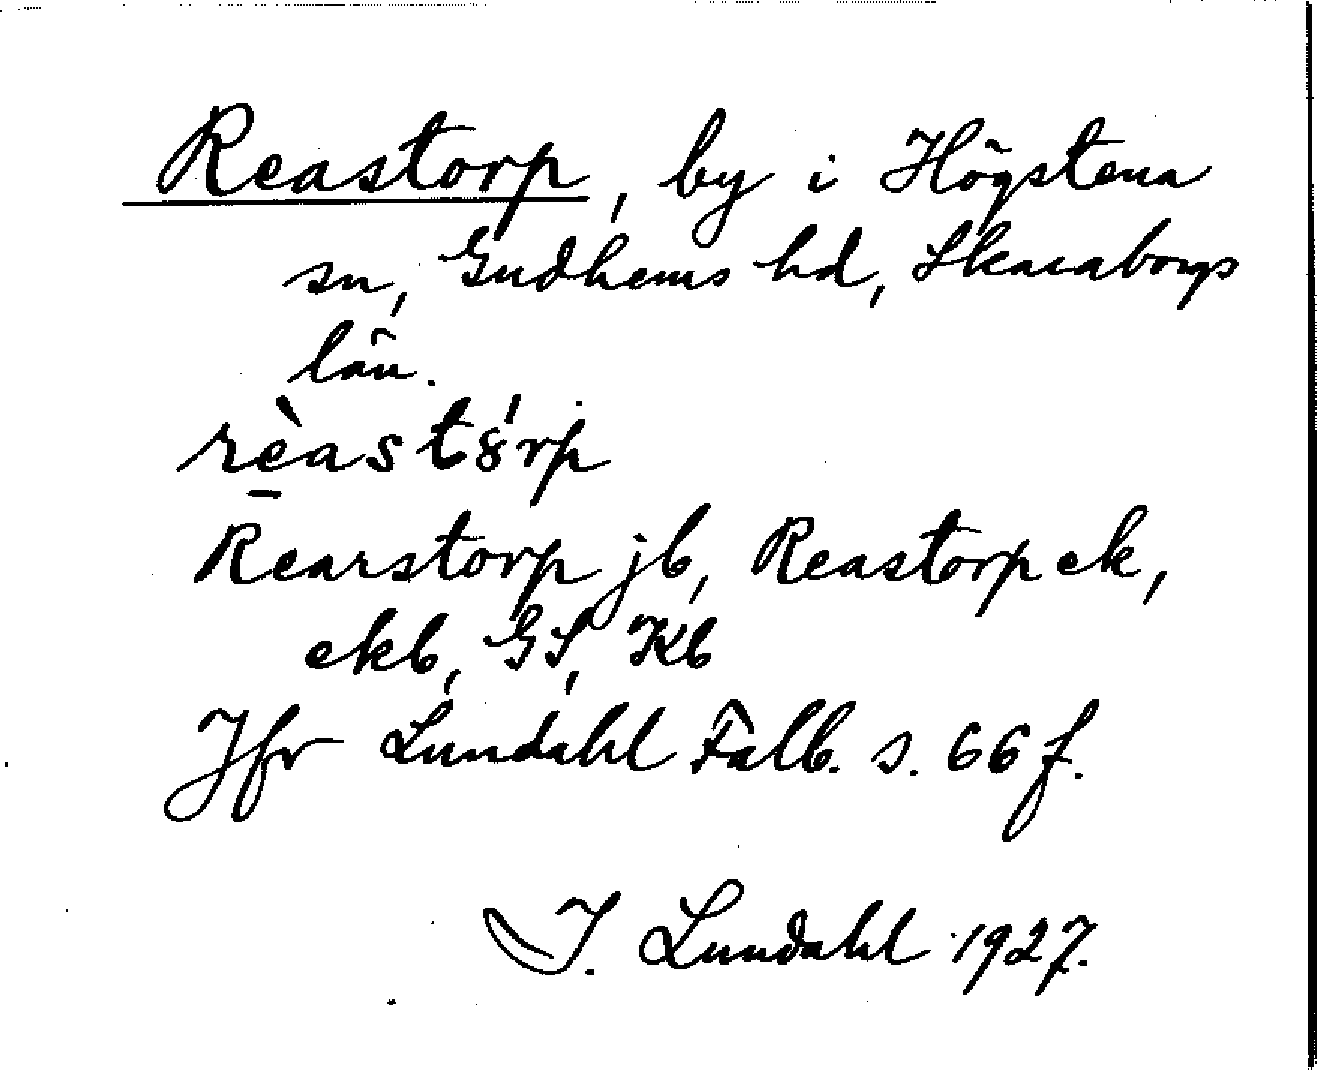 Reastorp, by i Högstena
sn, Gudhems hd, Skaraborgs
län.
rèast8́rp
Rearstorp jb, Reastorp ek,
ekb, GS, Kb
Jfr Lundahl Falb. s. 66 f.
I. Lundahl 1927.